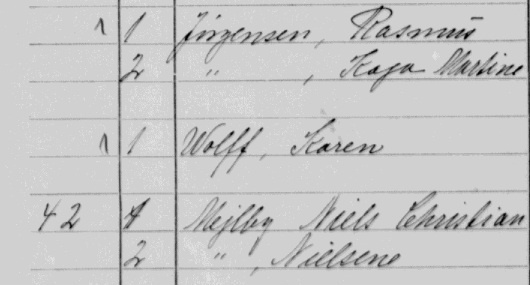 1 1 Jörgensen, Rasmus
2 " , Kaja Martine
1 1 Wolff, Karen
42 1 Mejlby Niels Christian
2 " , Nielsene